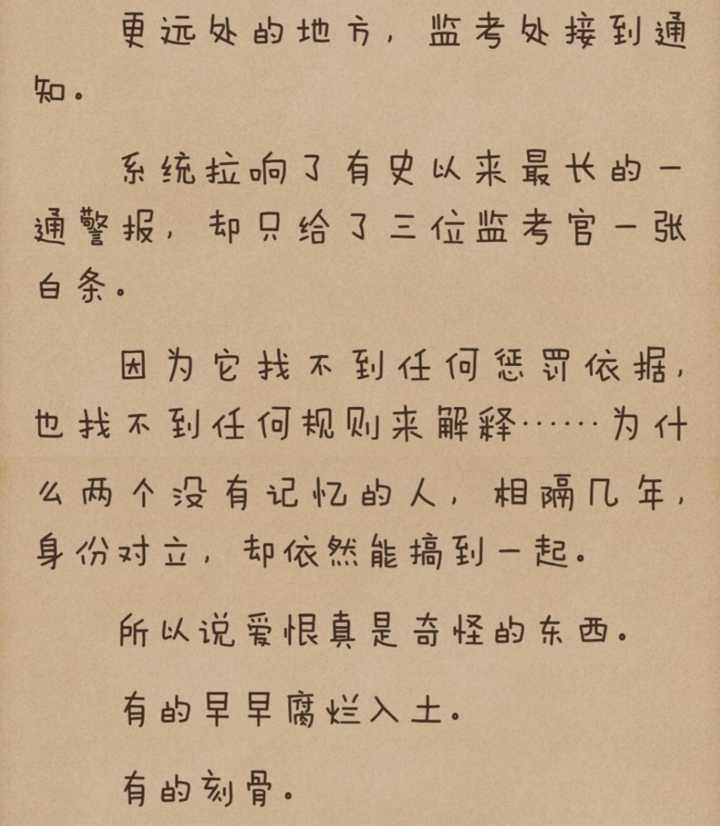 更远处的地方，监考处接到通
知。
系统拉响了有史以来最长的一
通警报，却只给了三位监考官一张
白条。
因为它找不到任何惩罚依据，
也找不到任何规则来解释……为什
么两个没有记忆的人，相隔几年，
身份对立，却依然能搞到一起。
所以说爱恨真是奇怪的东西。
有的早早腐烂入土。
有的刻骨。